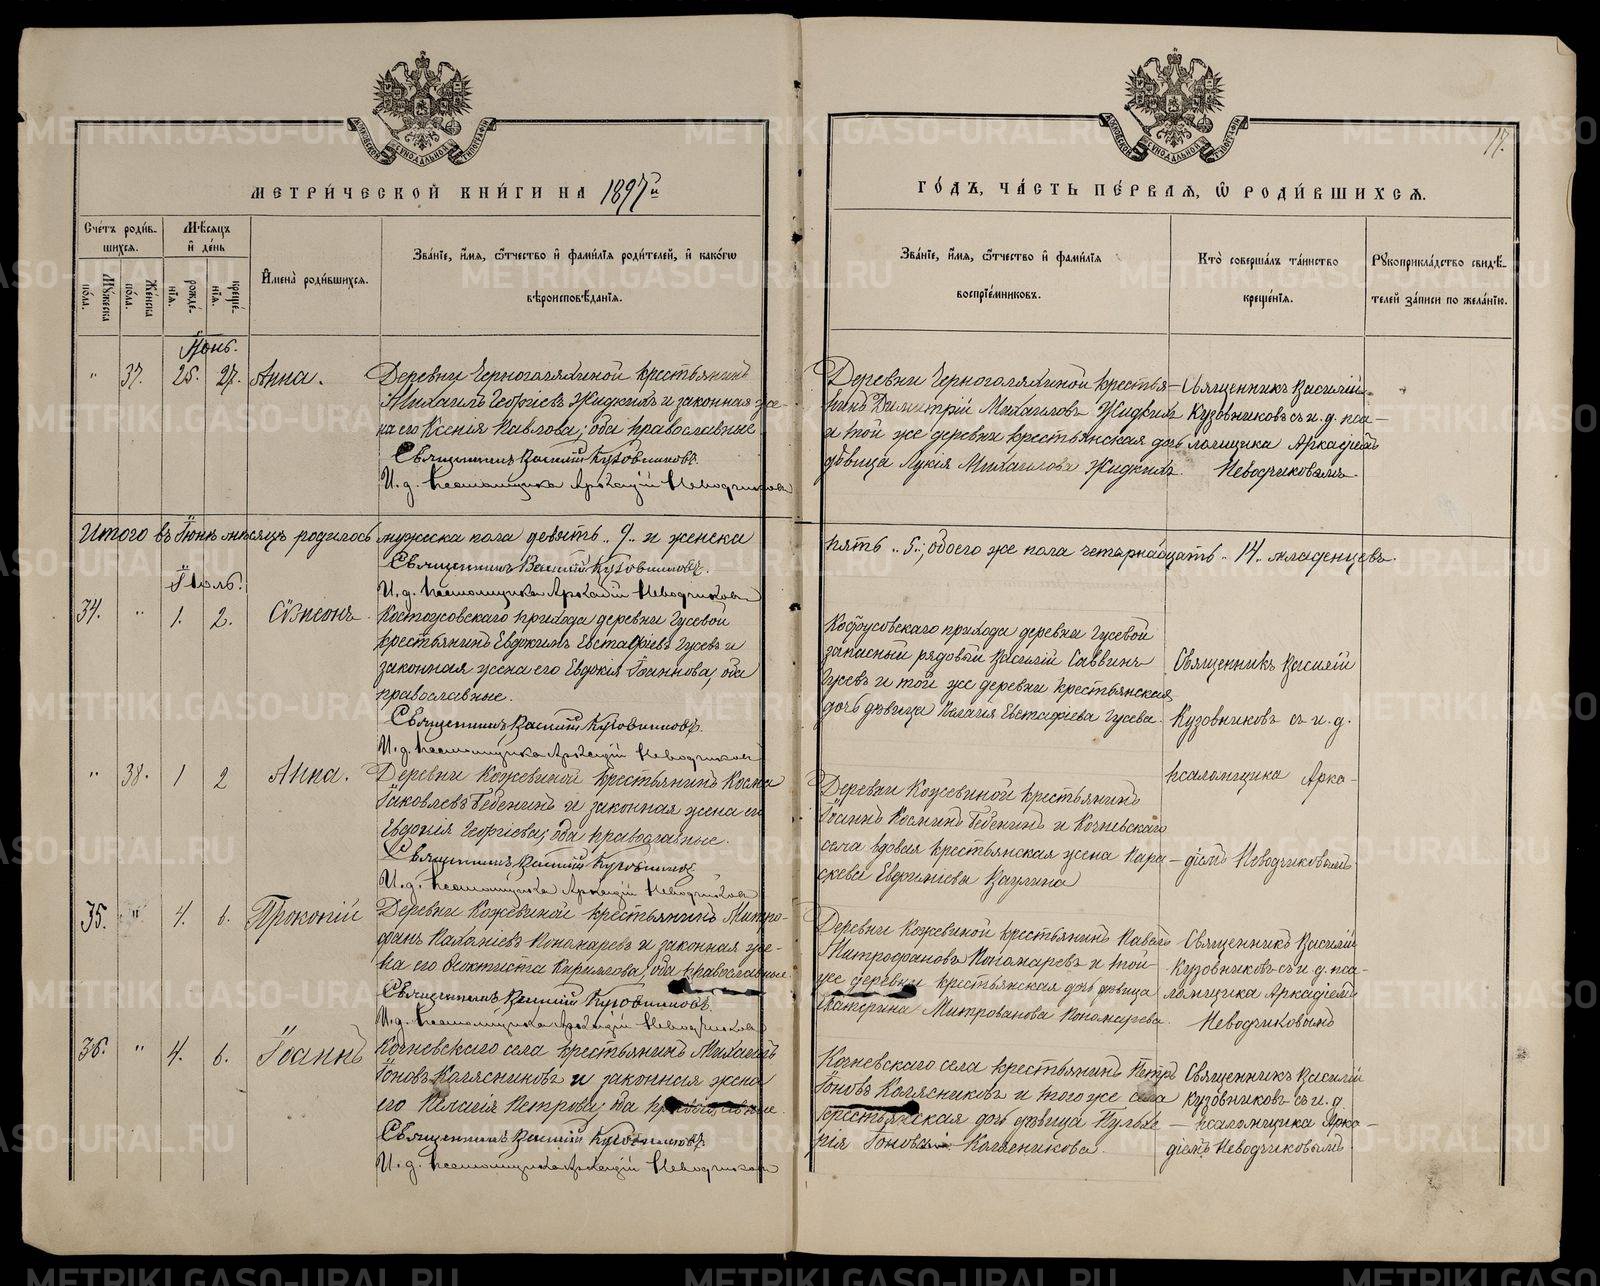 МЕТРИ́ЧЕСКОЙ КНИ́ГИ НА 1897й
ГО́ДЪ, ЧА́СТЬ ПЕ́РВАЯ, Ѡ РОДИ́ВШИХСЯ.
17.
Сче́тъ роди́в-
шихся.
Мѣ́сяцъ
и҆ де́нь
Му́жеска по́ла.
Же́нска по́ла.
рожде́нїя.
креще́нїя.
И҆мена̀ роди́вшихся.
Зва́нїе, и҆́мя, ѻ҆́тчество и҆ фами́лїя роди́телей, и҆ како́гѡ
вѣроисповѣ́данїя.
Зва́нїе, и҆́мя, ѻ҆́тчество и҆ фами́лїя
воспрїе́мниковъ.
Кто̀ соверша́лъ та́инство
креще́нїя.
Рꙋкоприкла́дство свидѣ́-
телей за́писи по жела́нїю.
Іюнь.
" 37. 25. 27. Анна.
Деревни Черноголяхиной крестьянинъ
Михаилъ Георгіевъ Жидкихъ и законная же-
на его Ксенія Павлова; оба православные
Священникъ Василій Кузовниковъ.
И. д. псаломщика Аркадій Неводчиковъ
Деревни Черноголяхиной крестья-
нинъ Димитрій Михаиловъ Жидкихъ
и той же деревни крестьянская дочь
дѣвица Лукія Михаилова Жидкихъ.
Священникъ Василій
Кузовниковъ съ и. д. пса-
ломщика Аркадіемъ
Неводчиковымъ
Итого въ Іюнѣ мѣсяцѣ родилось мужеска пола девять „9„ и женска
пять „5„; обоего же пола четырнадцать „14„ младенцевъ.
Священникъ Василій Кузовниковъ.
И. д. псаломщика Аркадій Неводчиковъ
Іюль.
34. " 1. 2. Сѵмеонъ
Костоусовскаго прихода деревни Гусевой
крестьянинъ Евѳимъ Евстаѳіевъ Гусевъ и
законная жена его Евдокія Іоаннова; оба
православные.
Священникъ Василій Кузовниковъ.
И. д. псаломщика Аркадій Неводчиковъ
Костоусовскаго прихода деревни Гусевой
запасный рядовой Василій Саввинъ
Гусевъ и той же деревни крестьянская
дочь дѣвица Пелагія Евстафіева Гусева.
Священникъ Василій
Кузовниковъ съ и. д.
псаломщика Арка-
діемъ Неводчиковымъ
" 38. 1 2 Анна.
Деревни Кожевиной крестьянинъ Косма
Іаковлевъ Бебенинъ и законная жена его
Евдокія Георгіева; оба православные.
Священникъ Василій Кузовниковъ
И. д. псаломщика Аркадій Неводчиковъ
Деревни Кожевиной крестьянинъ
Іоаннъ Косминъ Бебенинъ и Кочневскаго
села вдовая крестьянская жена Пара-
скева Евфиміева Ваулина
35. " 4. 6. Прокопій
Деревни Кожевиной крестьянинъ Митро-
фанъ Пономаревъ и законная же-
на его Ѳеоктиста Кириллова; оба православные.
Священникъ Василій Кузовниковъ.
И. д. псаломщика Аркадій Неводчиковъ
Деревни Кожевиной крестьянинъ Павелъ
Митрофановъ Пономаревъ и той
же деревни крестьянская дочь дѣвица
Екатерина Митрованова Пономарева.
Священникъ Василій
Кузовниковъ съ и. д. пса-
ломщика Аркадіемъ
Неводчиковымъ
36. " 4. 6. Іоаннъ
Кочневскаго села крестьянинъ Михаилъ
Іоновъ Колясниковъ и законная жена
его Пелагія Петрова; оба православные.
Священникъ Василій Кузовниковъ
И. д. псаломщика Аркадій Неводчиковъ
Кочневскаго села крестьянинъ Петръ
Іоновъ Колясниковъ и того же села
крестьянская дочь дѣвица Пульхе-
рія Іонова Колясникова.
Священникъ Василій
Кузовниковъ съ и. д.
псаломщика Арка-
діемъ Неводчиковымъ.
METRIKI.GASO-URAL.RU